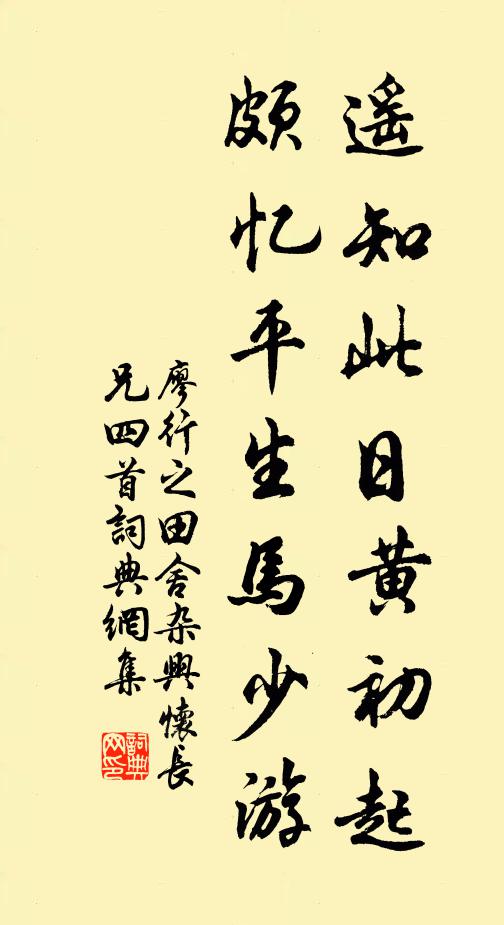 遥知此日黄初起
頗忆平生馬少游
廖行之田舍杂興懷長
兄四首詞典網集
詞典
网印